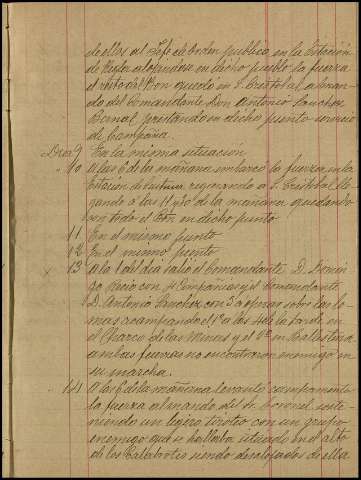 de ellos al Jefe de orden publico en la Estación
de alojandose en dicho pueblo la fuerza
el resto del Bon quedó en S. Cristobal al man-
do del Comandante Don Antonio Sanchez
Bernal prestando en dicho punto servicio
de Campaña.
Dia 9 En la misma situacion
10 A las 6 de la mañana embarcó la fuerza en la
Estacion de regresando a S. Cristobal lle-
gando a las 11 y 30 de la mañana quedando
en todo el Bon en dicho punto
11 En el mismo punto
12 En el mismo punto
13 A la 1 del dia salió el Comandante D. Domin-
go Recio con 4 Compañias y el Comandante
D. Antonio Sanchez con 3 a operar sobre las lo-
mas acampando el 1º a las 4 de la tarde en
el Charco de las Minas y el 2º en Ballestina
ambas fuerzas no encontraron enemigo en
su marcha.
14 A las 6 de la mañana levantó campamento
la fuerza al mando del Sr. Coronel soste-
niendo un ligero tiroteo con un grupo
enemigo que se hallaba situado en el alto
de los siendo desalojados de ella